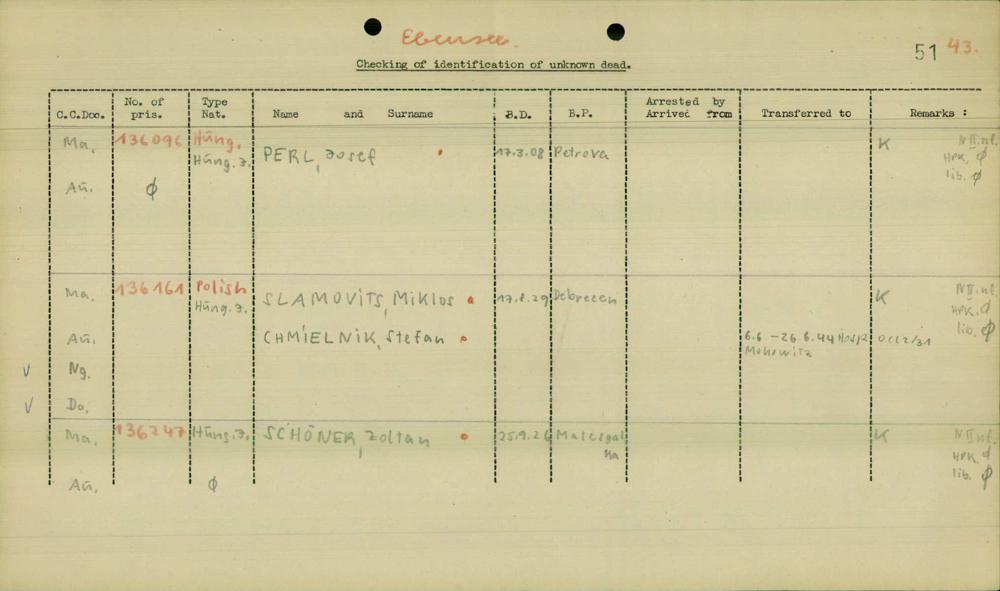 Ebensee.
51 43.
Checking of identification of unknown dead.
C.C.Doc. No. of pris. Type Nat. Name and Surname B.D. B.P. Arrested by Arrived from Transferred to Remarks :
Ma. 136096 Hüng. Hüng.J. PERL, Josef 17.3.08 Petrova K N II.nf. HPK. ϕ lib. ϕ
Aü. ϕ
Ma. 136161 Polish Hüng.J. SLAMOVITS, Miklos 17.8.29 Debrecen K N II.nf. HPK. ϕ lib. ϕ
Aü. CHMIELNIK, Stefan 6.6.-26.6.44 Hosp. Monowitz OCC2/31
√ Ng.
√ Do.
Ma. 136247 Hüng.J. SCHÖNER, Zoltan 25.9.26 K N II nf. HPK. ϕ lib. ϕ
Aü. ϕ